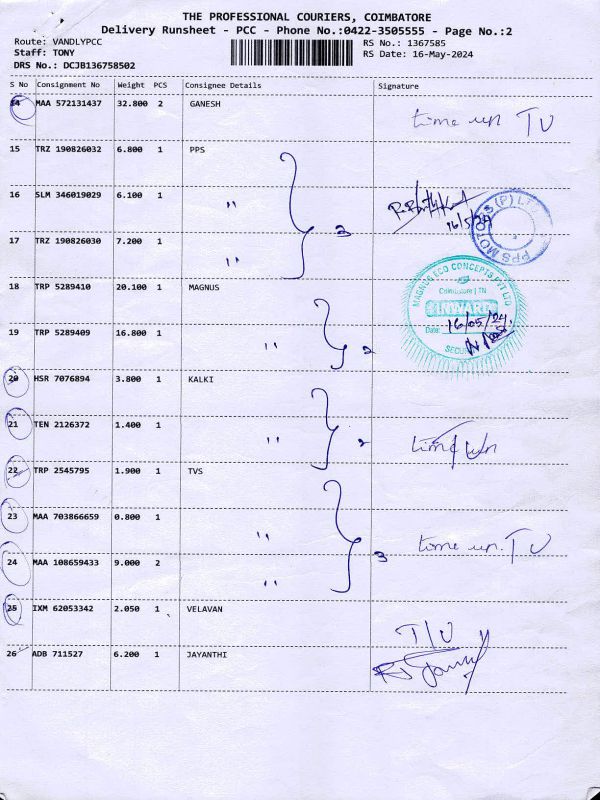 THE PROFESSIONAL COURIERS, COIMBATORE
Delivery Runsheet - PCC - Phone No.:0422-3505555 - Page No.:2
Route: VANDLYPCC
RS No.: 1367585
Staff: TONY
RS Date: 16-May-2024
DRS No.: DCJB136758502
S No Consignment No Weight PCS Consignee Details Signature
14 MAA 572131437 32.800 2 GANESH
time up TU
15 TRZ 190826032 6.800 1 PPS
16 SLM 346019029 6.100 1 "
16/5/24
PPS MOTORS (P) LTD
3
17 TRZ 190826030 7.200 1 "
18 TRP 5289410 20.100 1 MAGNUS
MAGNUS ECO CONCEPTS PVT LTD
Coimbatore | TN
INWARD
Date: 16/05/24
SECURITY
19 TRP 5289409 16.800 1 " 2
20 HSR 7076894 3.800 1 KALKI
21 TEN 2126372 1.400 1 " 2
time up
22 TRP 2545795 1.900 1 TVS
23 MAA 703866659 0.800 1 "
time up. TU
24 MAA 108659433 9.000 2 " 3
25 IXM 62053342 2.050 1 VELAVAN
T/U
26 ADB 711527 6.200 1 JAYANTHI